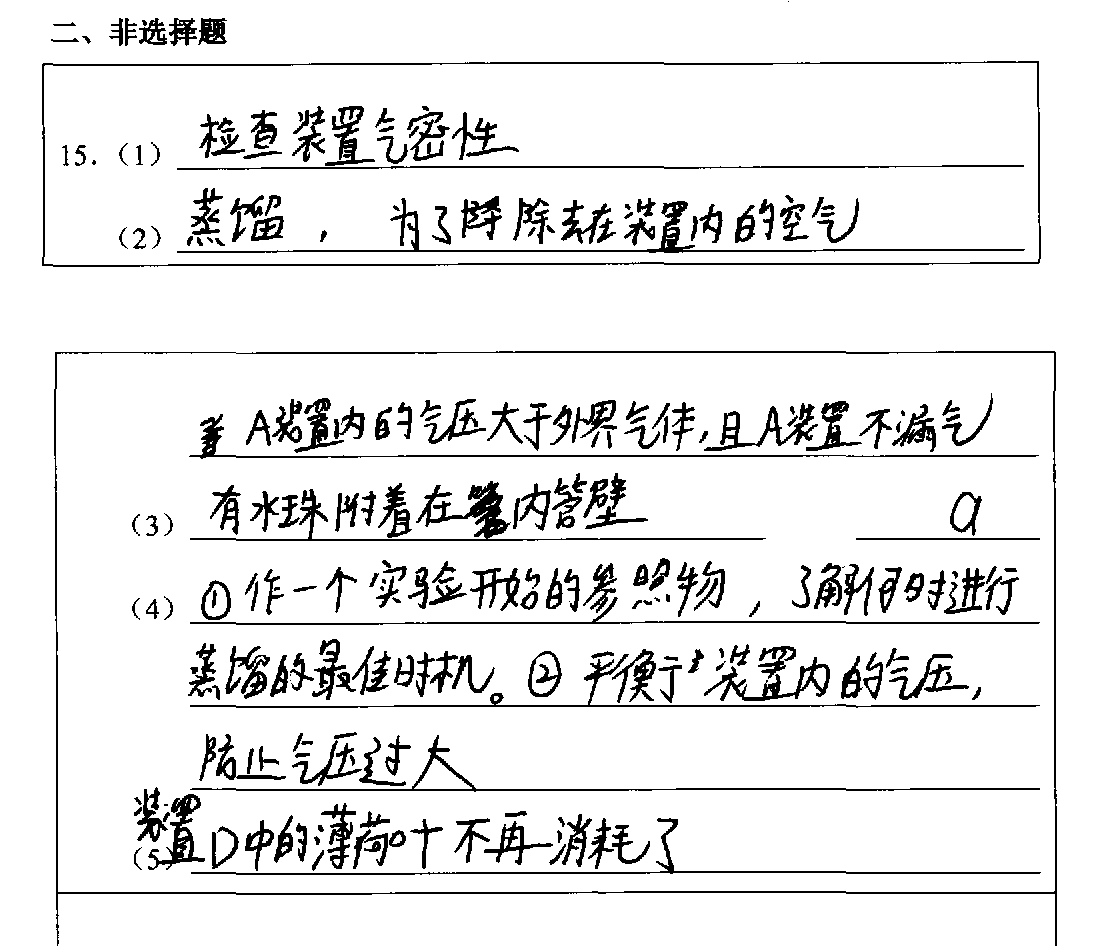 二、非选择题
15.(1) 检查装置气密性
(2) 蒸馏， 为了降除去在装置内的空气
A装置内的气压大于外界气体，且A装置不漏气
(3) 有水珠附着在内管壁 a
(4) ①作一个实验开始的参照物，了解何时进行
蒸馏的最佳时机。②平衡于装置内的气压，
防止气压过大
(5) 装置D中的薄荷叶不再消耗了